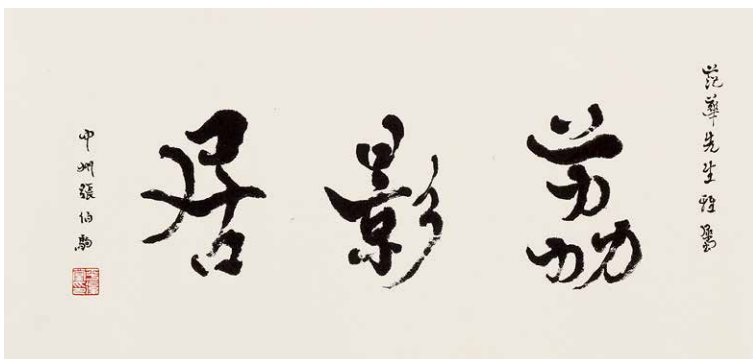 范華先生雅屬
荔影居
中州張伯駒